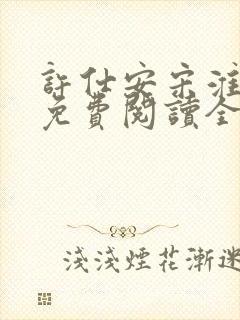 許仕安宋淮
免費閱讀全
淺淺煙花漸迷